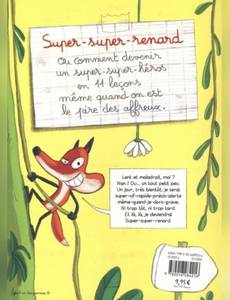 Super-super-renard
Ou comment devenir
un super-super-héros
en 11 leçons
même quand on est
le pire des affreux.
Lent et maladroit, moi ?
Nan ! Ou... un tout petit peu.
Un jour, très bientôt, je serai
super-vif-rapide-précis-alerte
même-quand-je-dors-grave.
Ni trop tôt, ni trop tard.
Et là, là, je deviendrai
Super-super-renard.
9,95 €